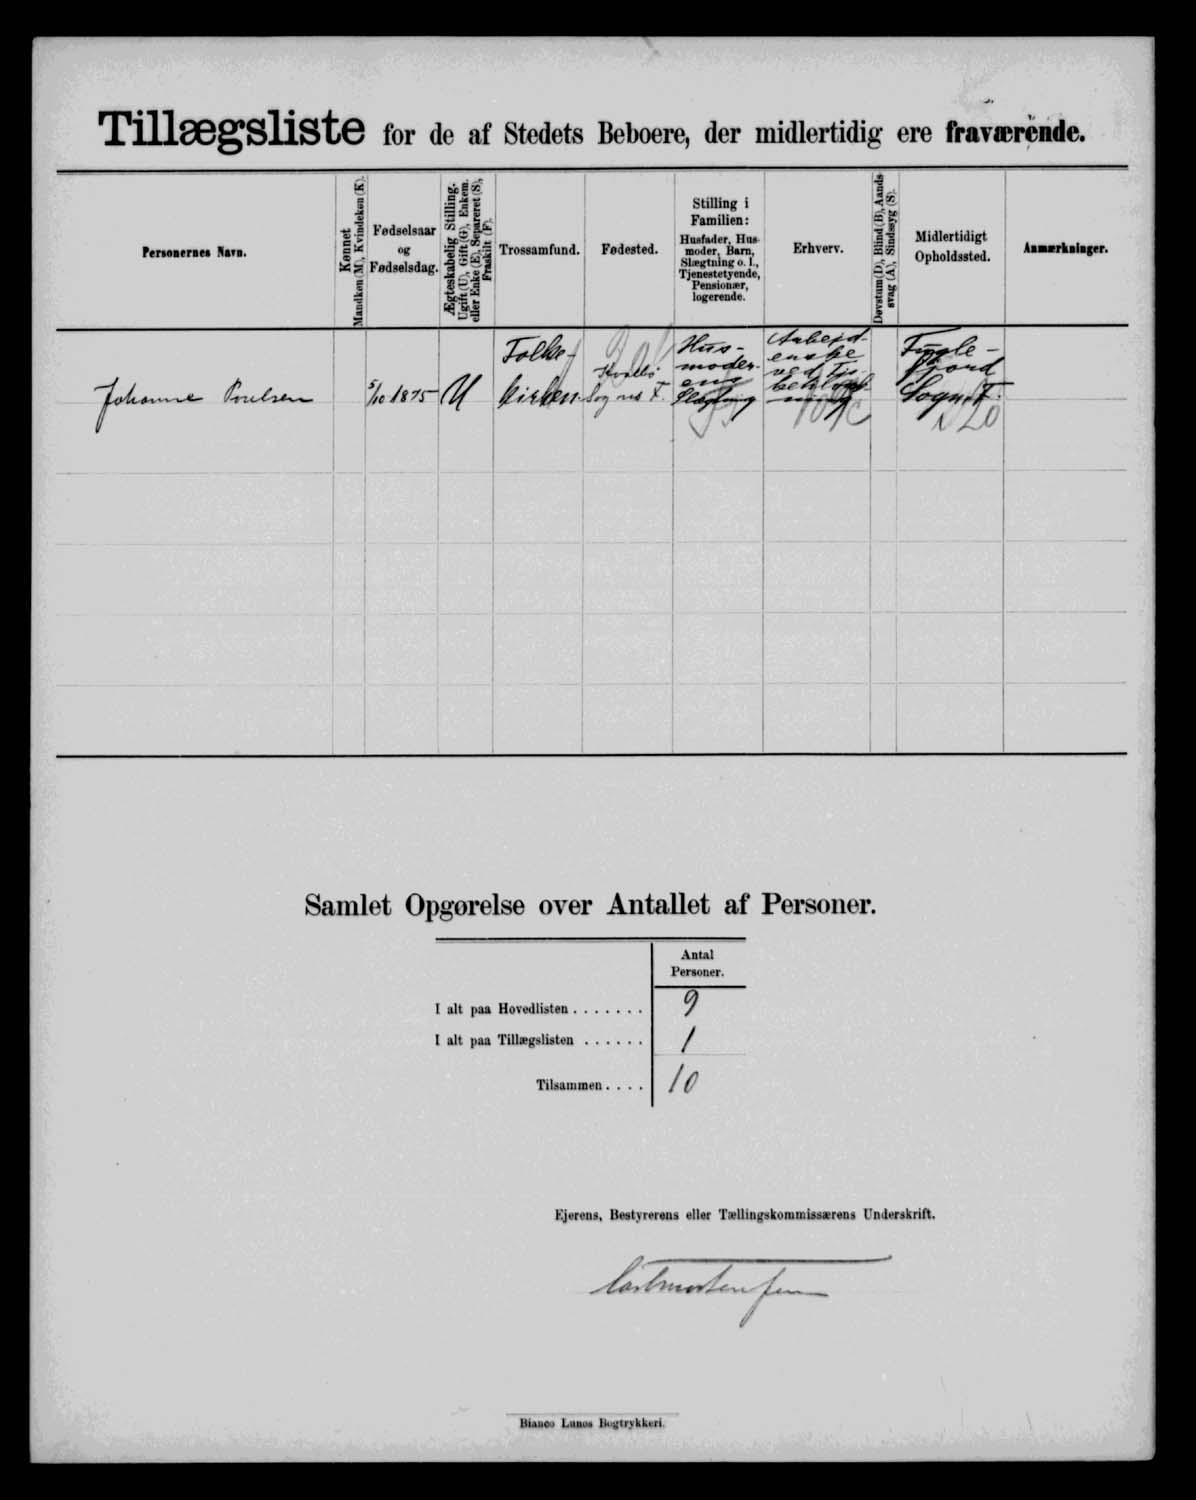 Tillægsliste for de af Stedets Beboere, der midlertidig ere fraværende.
Personernes Navn.
Kønnet
Mandkøn (M), Kvindekøn (K).
Fødselsaar
og
Fødselsdag.
Ægteskabelig Stilling.
Ugift (U), Gift (G), Enkem.
eller Enke (E), Separeret (S),
Fraskilt (F).
Trossamfund.
Fødested.
Stilling i
Familien:
Husfader, Hus-
moder, Barn,
Slægtning o. l.,
Tjenestetyende,
Pensionær,
logerende.
Erhverv.
Døvstum (D), Blind (B), Aands-
svag (A), Sindssyg (S).
Midlertidigt
Opholdssted.
Anmærkninger.
Johanne Poulsen
5/10 1875
U
Folke-
kirken
Kvalbø
Sogn F.
Hus-
moder-
ens
Slægtning
Arbejd-
erske
ved Fis-
Fugle-
fjord
Sogn F.
Samlet Opgørelse over Antallet af Personer.
Antal
Personer.
I alt paa Hovedlisten . . . . . . . 9
I alt paa Tillægslisten . . . . . . 1
Tilsammen . . . . 10
Ejerens, Bestyrerens eller Tællingskommissærens Underskrift.
Bianco Lunos Bogtrykkeri.